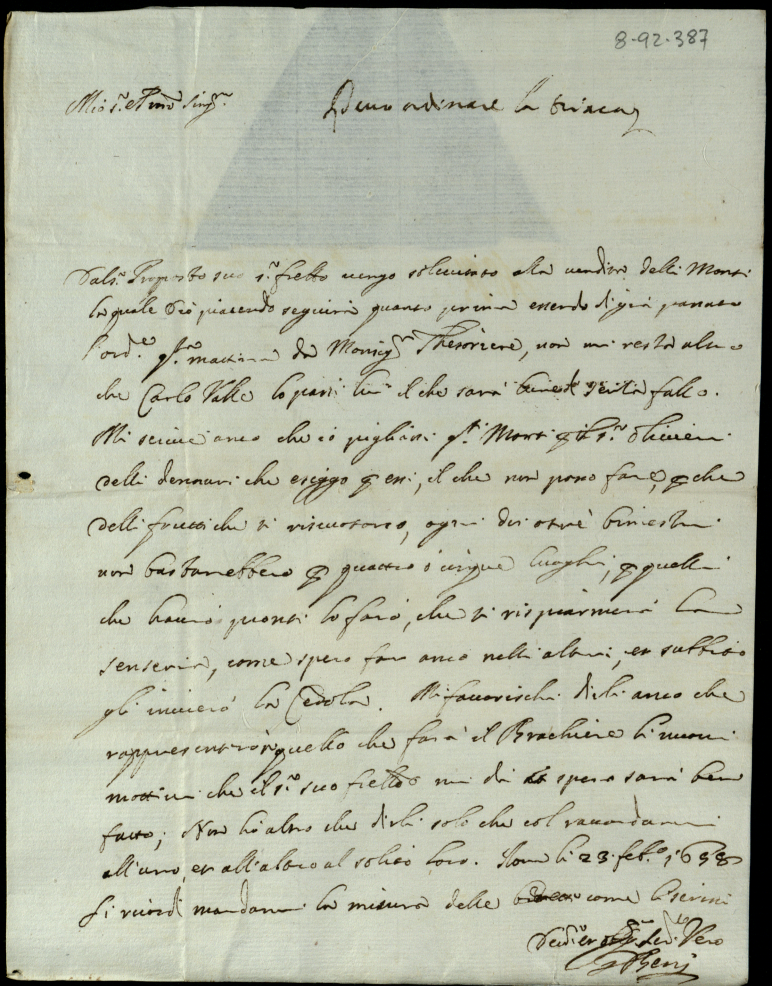 8-92-387
Mio s.r e P.rone Sing.mo
devo ordinare la triaca
Dal s.r Proposto suo s.r fr̃ello vengo sollecitato alla vendita delli Monti
la quale Dio piacendo seguirà quanto prima essendo di già passato
l'ord.e q.sta mattina da Monsig.r Thesoriere, non mi resta altro
che Carlo Valle lo passi il che sarà fallo.
Mi scrive anco che io pigliassi q.sti Monti s.r
delli denari che esiggo p essi, il che non posso fare, p che
delli frutti che si riscuotono, ogni
non bastarebbero p quattro ò cinque luoghi, p quelli
che haverò pronti lo farò, che si risparmierà la
senseria, come spero fare anco nelli altri, et subbito
gli invierò la Cedola. Mi favorischi dirli anco che
rappresenterò quello che farà il Brachiere li nuovi
mottivi che il s.r suo fr̃ello mi dà spero sarà ben
fatto; Non hò altro che dirli solo che col raccordarmi
all'uno, et all'altro al solito loro. Roma li 23 feb.o 1658
Si ricordi mandarmi la misura delle come li scrissi
Vero